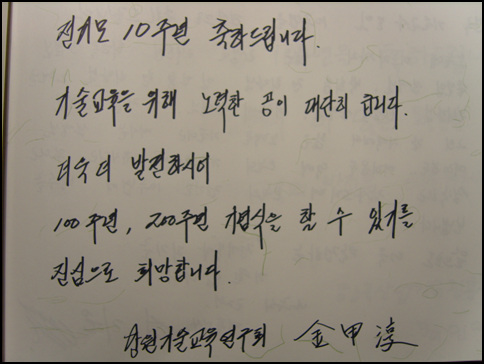 전기모 10주년 축하드립니다.
기술교육을 위해 노력한 공이 대단히 큽니다.
더욱 더 발전하시어
100주년, 200주년 기념식을 할 수 있기를
진심으로 희망합니다.
창원기술교육연구회 金甲淳